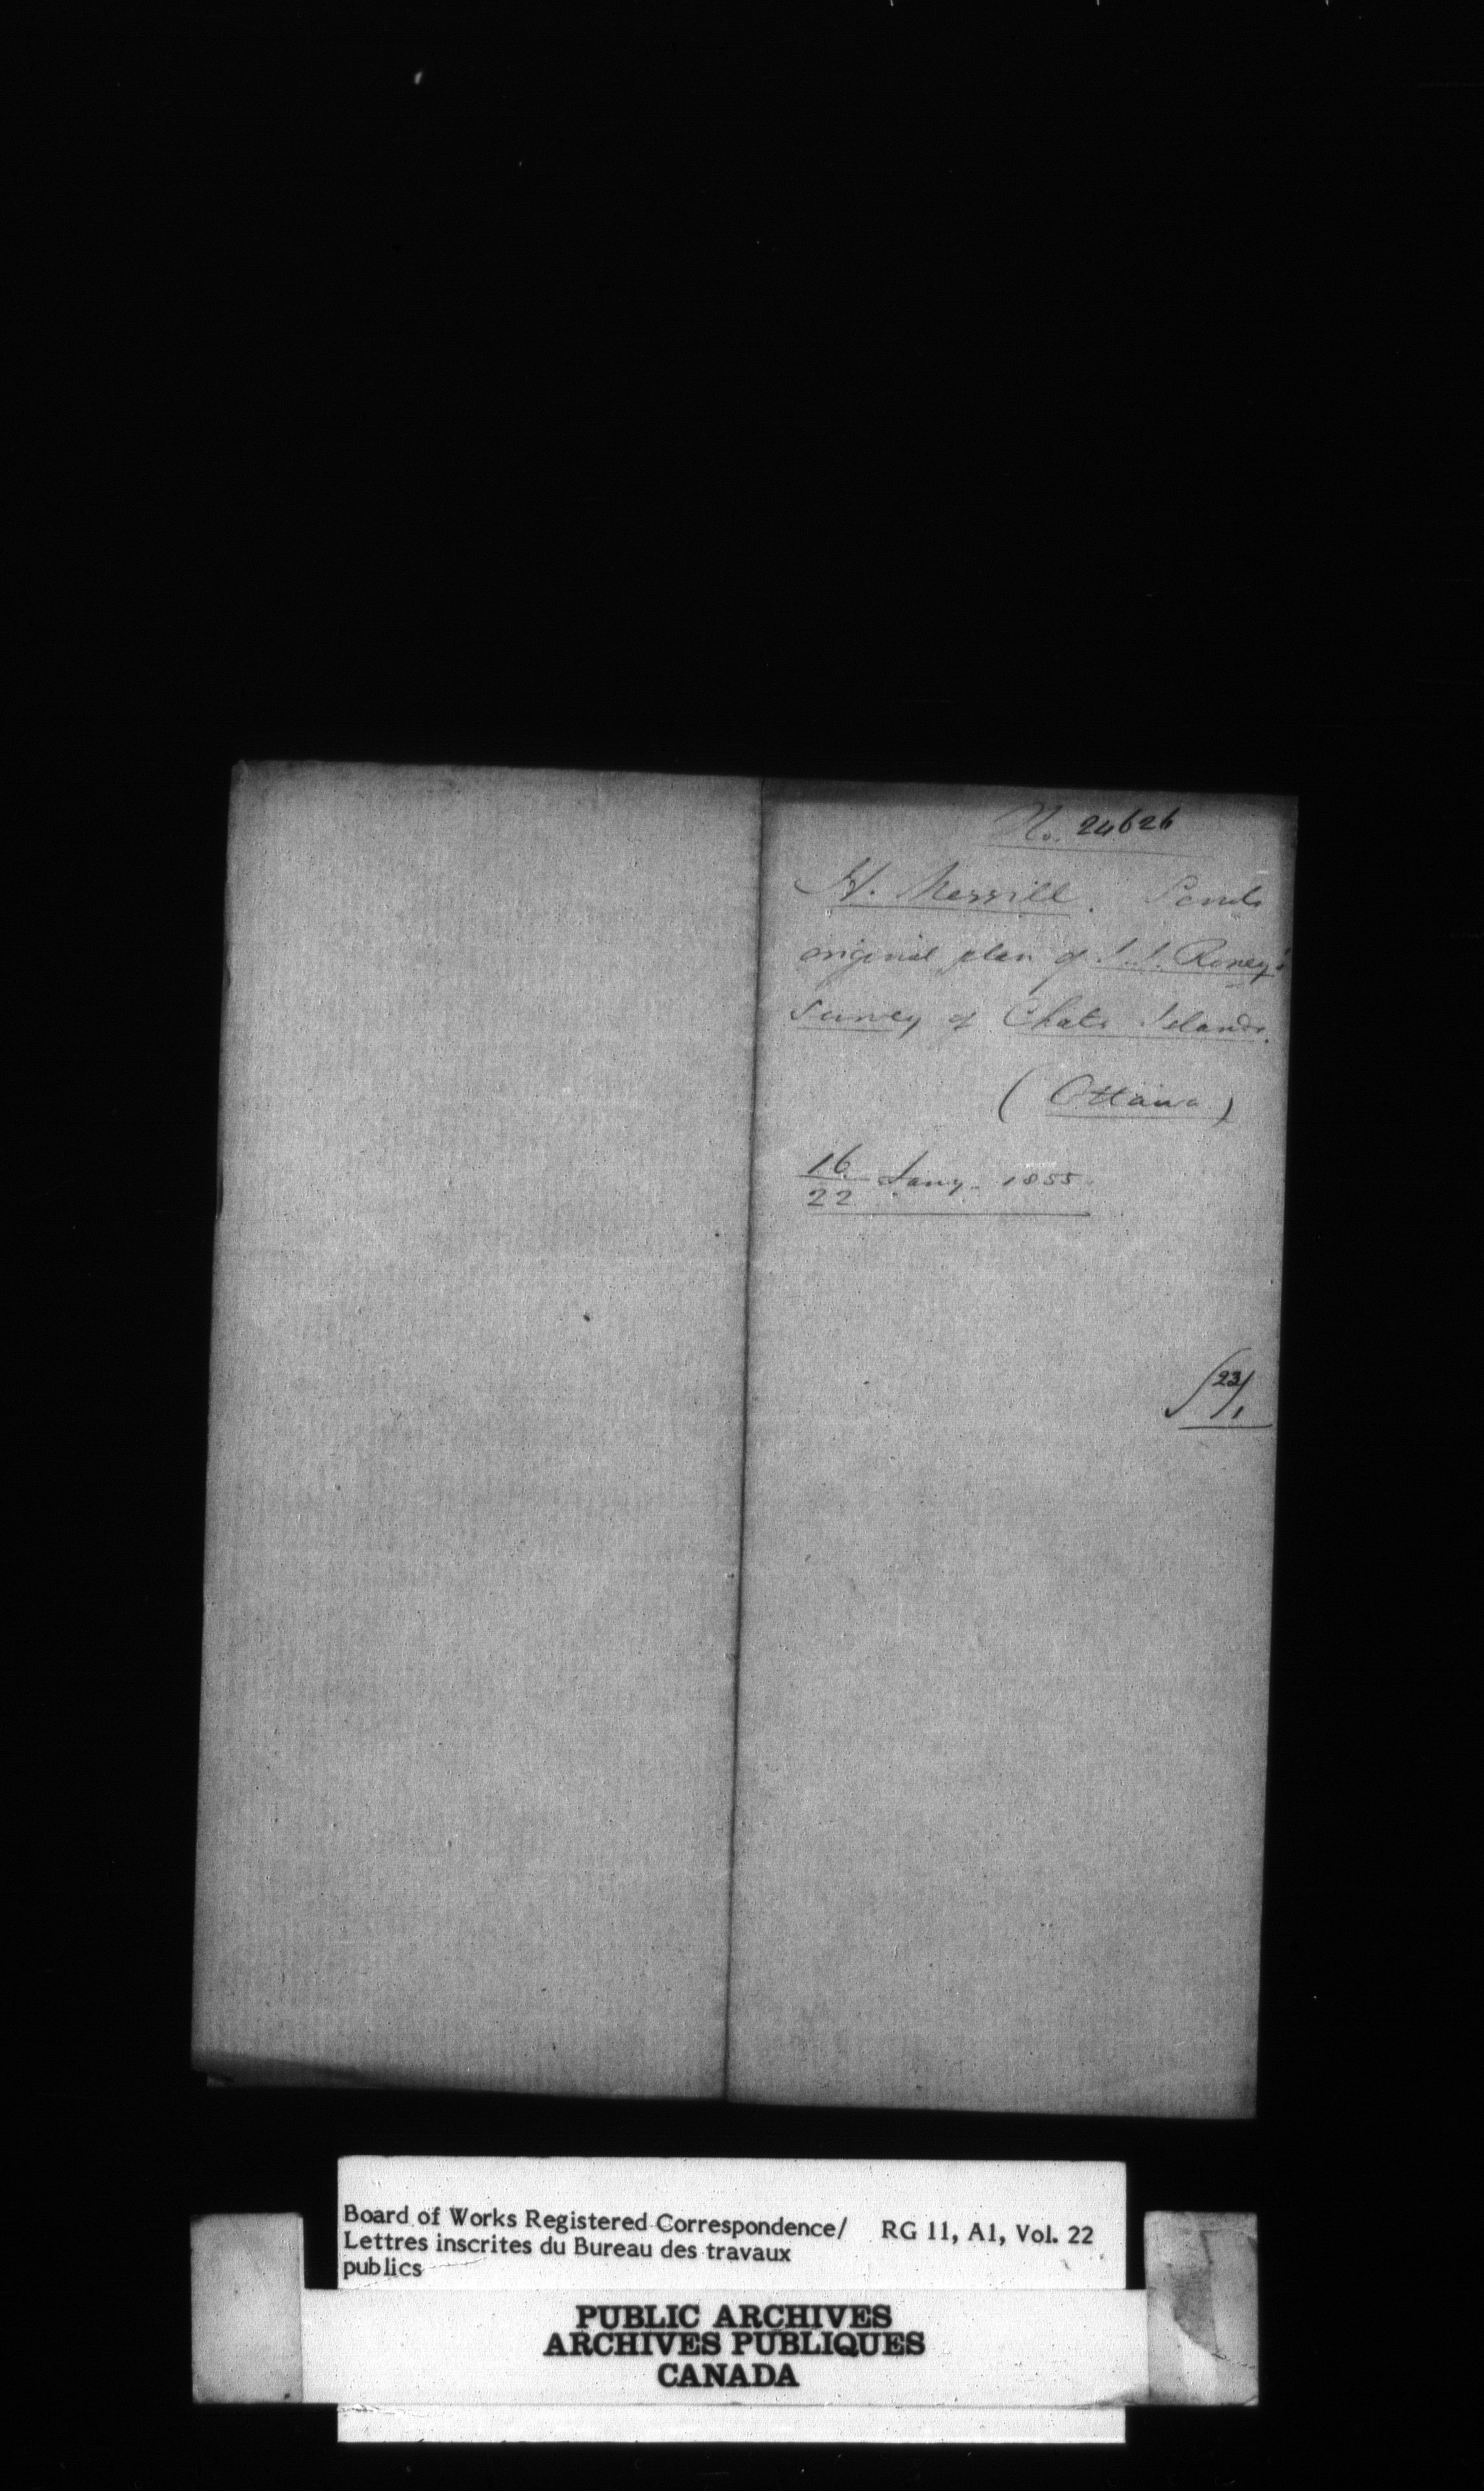 No. 24626
H. Merrill. Sends
original plan of J. J. Roney's
Survey of Chats Islands.
(Ottawa)
16/22 Jany. 1855
23/1
Board of Works Registered Correspondence/ RG 11, A1, Vol. 22
Lettres inscrites du Bureau des travaux
publics
PUBLIC ARCHIVES
ARCHIVES PUBLIQUES
CANADA